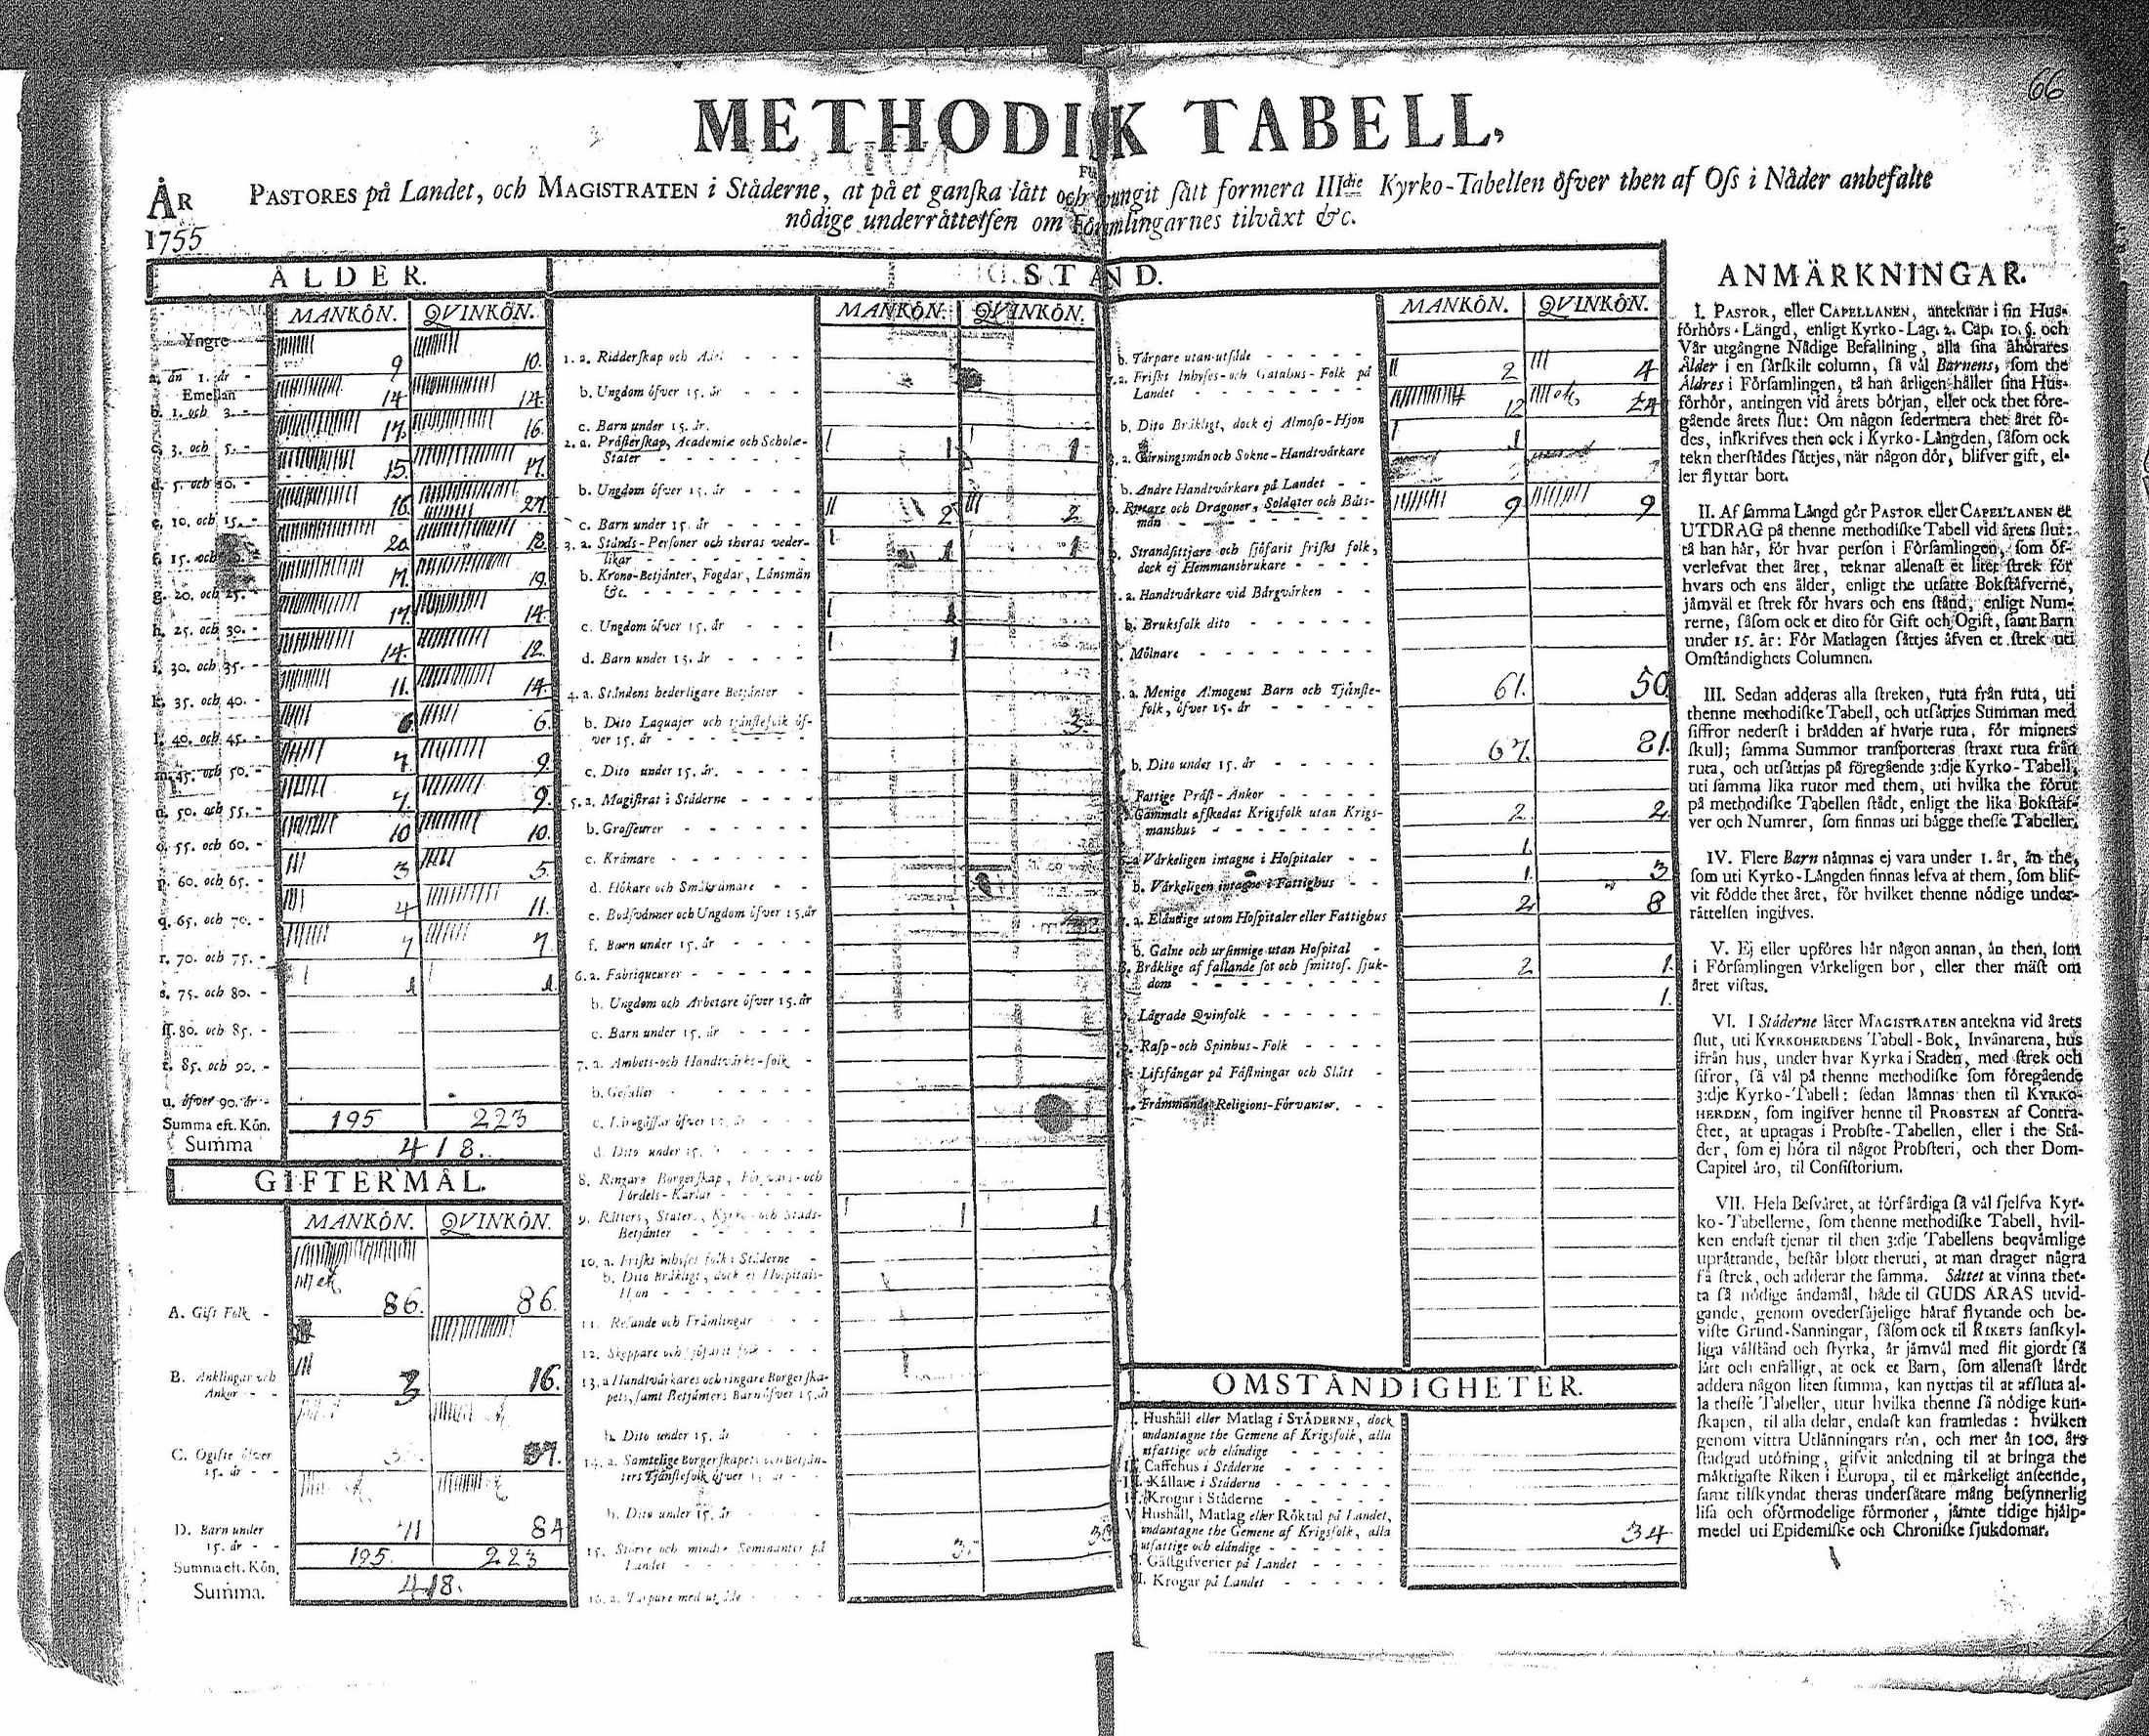 66
METHODIK TABELL,
ÅR
1755
PASTORES på Landet, och MAGISTRATEN i Städerne, at på et ganska lätt och sätt formera IIIdie Kyrko-Tabellen öfver then af Oss i Nåder anbefalte
nödige underrättelsen om tilväxt &c.
ÅLDER.
MANKÖN. QVINKÖN.
Yngre
a. än 1. år - 9 10.
Emellan
b. 1. och 3. - 14 14.
c. 3. och 5. - 17. 16.
d. 5. och 10. - 15. 17.
e. 10. och 15. - 16. 27.
f. 15. och 20. 12.
g. 20. och 25. - 17. 19.
h. 25. och 30. - 17. 14.
i. 30. och 35. - 14. 12.
k. 35. och 40. - 11. 14.
l. 40. och 45. - 6. 6.
m. 45. och 50. - 7. 9.
n. 50. och 55. - 7. 9.
o. 55. och 60. - 10 10.
p. 60. och 65. - 3 5.
q. 65. och 70. - 4 11.
r. 70. och 75. - 7 7.
s. 75. och 80. - 1 1.
ss. 80. och 85. -
t. 85. och 90. -
u. öfver 90. år -
Summa eft. Kön. 195 223
Summa 418.
GIFTERMÅL.
MANKÖN. QVINKÖN.
A. Gift Folk - 86. 86.
B. Änklingar och
Änkor - - 3 16.
C. Ogifte öfver
15. år - - 37.
D. Barn under
15. år - - 71 84
Summa eft. Kön, 195. 223
Summa. 418.
STÅND.
MANKÖN. QVINKÖN.
1. a. Ridderskap och Adel - - -
b. Ungdom öfver 15. år - - -
c. Barn under 15. år.
2. a. Prästerskap, Academiæ och Scholæ-
Stater - - - - - - 1 1
b. Ungdom öfver 15. år - - -
c. Barn under 15. år - - - - 2 2
3. a. Stånds-Personer och theras veder-
likar - - - - - - - 1 1
b. Krono-Betjänter, Fogdar, Länsmän
&c. - - - - - - - -
c. Ungdom öfver 15. år - - - 1
d. Barn under 15. år - - - - 1
4. a. Ståndens hederligare Betjänter -
b. Dito Laquajer och tjänstefolk öf-
ver 15. år - - - - - - - 3
c. Dito under 15. år. - - - -
5. a. Magistrat i Städerne - - - -
b. Grosseurer - - - - - - -
c. Krämare - - - - - - -
d. Hökare och Småkrämare - -
e. Bodsvänner och Ungdom öfver 15. år
f. Barn under 15. år - - - -
6. a. Fabriqueurer - - - - - -
b. Ungdom och Arbetare öfver 15. år
c. Barn under 15. år - - - -
7. a. Ambets-och Handtvärks-folk -
b. Gesäller - - - - - - -
c. öfver 15. år
d. Dito under 15. år
8. Ringare Borgerskap, Försvars-och
Fördels-Karlar - - - - - -
9. Rätters, Staters, Kyrko- och Stads-
Betjänter - - - - - - 1 1
10. a. Friskt inhyses folk i Städerne -
b. Dito Bräkligt, dock ej Hospitals-
Hjon - - - - - - - -
11. Resande och Främlingar - - -
12. Skeppare och sjöfarit folk - - -
13. a Handtvärkares och ringare Borgerska-
pets, samt Betjänters Barn öfver 15. år
b. Dito under 15. år - - - -
14. a. Samtelige Borgerskapets och Betjän-
ters Tjänstefolk öfver 15. år - -
b. Dito under 15. år - - - -
15. Större och mindre Hemmanter på
Landet - - - - - - -
16. a. Torpare med utsäde - - - -
MANKÖN. QVINKÖN.
b. Torpare utan utsäde - - - - - 2 4
a. Friskt Inhyses-och Gatahus-Folk på
Landet - - - - - - - 12 24
b. Dito Bräkligt, dock ej Almoso-Hjon 1
a. Gärningsmän och Sokne-Handtvärkare
b. Andre Handtvärkare på Landet - - 9 9
Ryttare och Dragoner, Soldater och Båts-
män - - - - - - - -
Strandsittjare och sjöfarit friskt folk,
dock ej Hemmansbrukare - - - -
a. Handtvärkare vid Bärgvärken - -
b. Bruksfolk dito - - - - - -
Mölnare - - - - - - - -
a. Menige Almogens Barn och Tjänste-
folk, öfver 15. år - - - - - 61. 50
b. Dito under 15. år - - - - - 67. 81.
Fattige Präst-Änkor - - - - -
Gammalt afskedat Krigsfolk utan Krigs-
manshus - - - - - - - 2 2
a Värkeligen intagne i Hospitaler - - 1.
b. Värkeligen intagne i Fattighus - - 1. 3
a. Eländige utom Hospitaler eller Fattighus 2 8
b. Galne och ursinnige utan Hospital -
Bräklige af fallande sot och smittos. sjuk-
dom - - - - - - - - 2 1.
Lägrade Qvinfolk - - - - - - 1.
Rasp-och Spinhus-Folk - - - -
Lifsfångar på Fästningar och Slått -
Främmande Religions-Förvanter. - -
OMSTÄNDIGHETER.
Hushåll eller Matlag i STÄDERNE, dock
undantagne the Gemene af Krigsfolk, alla
utfattige och eländige - - - - -
Caffehus i Städerne - - - - -
Källare i Städerne - - - - -
Krogar i Städerne - - - - -
Hushåll, Matlag eller Röktal på Landet,
undantagne the Gemene af Krigsfolk, alla
utfattige och eländige - - - - - 34
Gästgifverier på Landet - - - -
Krogar på Landet - - - - -
ANMÄRKNINGAR.
I. PASTOR, eller CAPELLANEN, antecknar i sin Hus-
förhörs-Längd, enligt Kyrko-Lag. 2. Cap. 10. §. och
Vår utgångne Nådige Befallning, alla sina åhörares
Ålder i en särskilt column, så väl Barnens, som the
Äldres i Församlingen, tå han årligen håller sina Hus-
förhör, antingen vid årets början, eller ock thet före-
gående årets slut: Om någon sedermera thet året fö-
des, inskrifves then ock i Kyrko-Längden, såsom ock
tekn therstädes sättjes, när någon dör, blifver gift, el-
ler flyttar bort.
II. Af samma Längd gör PASTOR eller CAPELLANEN et
UTDRAG på thenne methodiske Tabell vid årets slut:
tå han här, för hvar person i Församlingen, som öf-
verlefvat thet året, teknar allenast et litet strek för
hvars och ens ålder, enligt the utsatte Bokstäfverne,
jämväl et strek för hvars och ens stånd, enligt Num-
rerne, såsom ock et dito för Gift och Ogift, samt Barn
under 15. år: För Matlagen sättjes äfven et strek uti
Omständighets Columnen.
III. Sedan adderas alla streken, ruta från ruta, uti
thenne methodiske Tabell, och utsättjes Summan med
siffror nederst i brädden af hvarje ruta, för minnets
skull; samma Summor transporteras straxt ruta från
ruta, och utsättjas på föregående 3:dje Kyrko-Tabell,
uti samma lika rutor med them, uti hvilka the förut
på methodiske Tabellen städt, enligt the lika Bokstäf-
ver och Numrer, som finnas uti bägge thesse Tabeller.
IV. Flere Barn nämnas ej vara under 1. år, än the,
som uti Kyrko-Längden finnas lefva af them, som blif-
vit födde thet året, för hvilket thenne nödige under-
rättelsen ingifves.
V. Ej eller upföres här någon annan, än then, som
i Församlingen värkeligen bor, eller ther mäst om
året vistas.
VI. I Städerne låter MAGISTRATEN antekna vid årets
slut, uti KYRKOHERDENS Tabell-Bok, Invånarena, hus
ifrån hus, under hvar Kyrka i Staden, med strek och
sifror, så väl på thenne methodiske som föregående
3:dje Kyrko-Tabell: sedan lämnas then til KYRKO-
HERDEN, som ingifver henne til PROBSTEN af Contra-
ctet, at uptagas i Probste-Tabellen, eller i the Stä-
der, som ej höra til något Probsteri, och ther Dom-
Capitel äro, til Consistorium.
VII. Hela Besväret, at förfärdiga så väl sjelfva Kyr-
ko-Tabellerne, som thenne methodiske Tabell, hvil-
ken endast tjenar til then 3:dje Tabellens beqvämlige
uprättande, består blott theruti, at man drager några
få strek, och adderar the samma. Sättet at vinna thet-
ta så nödige ändamål, både til GUDS ÄRAS utvid-
gande, genom ovedersäjelige häraf flytande och be-
viste Grund-Sanningar, såsom ock til RIKETS sanskyl-
liga välstånd och styrka, är jämväl med flit gjordt så
lätt och enfalligt, at ock et Barn, som allenast lärdt
addera någon liten summa, kan nyttjas til at afsluta al-
la thesse Tabeller, utur hvilka thenne så nödige kun-
skapen, til alla delar, endast kan framledas: hvilken
genom vittra Utlänningars rön, och mer än 100. års
stadgad utöfning, gifvit anledning til at bringa the
mäktigaste Riken i Europa, til et märkeligt anseende,
samt tilskyndat theras undersåtare mång besynnerlig
lisa och oförmodelige förmoner, jämte tidige hjälp-
medel uti Epidemiske och Chroniske sjukdomar.